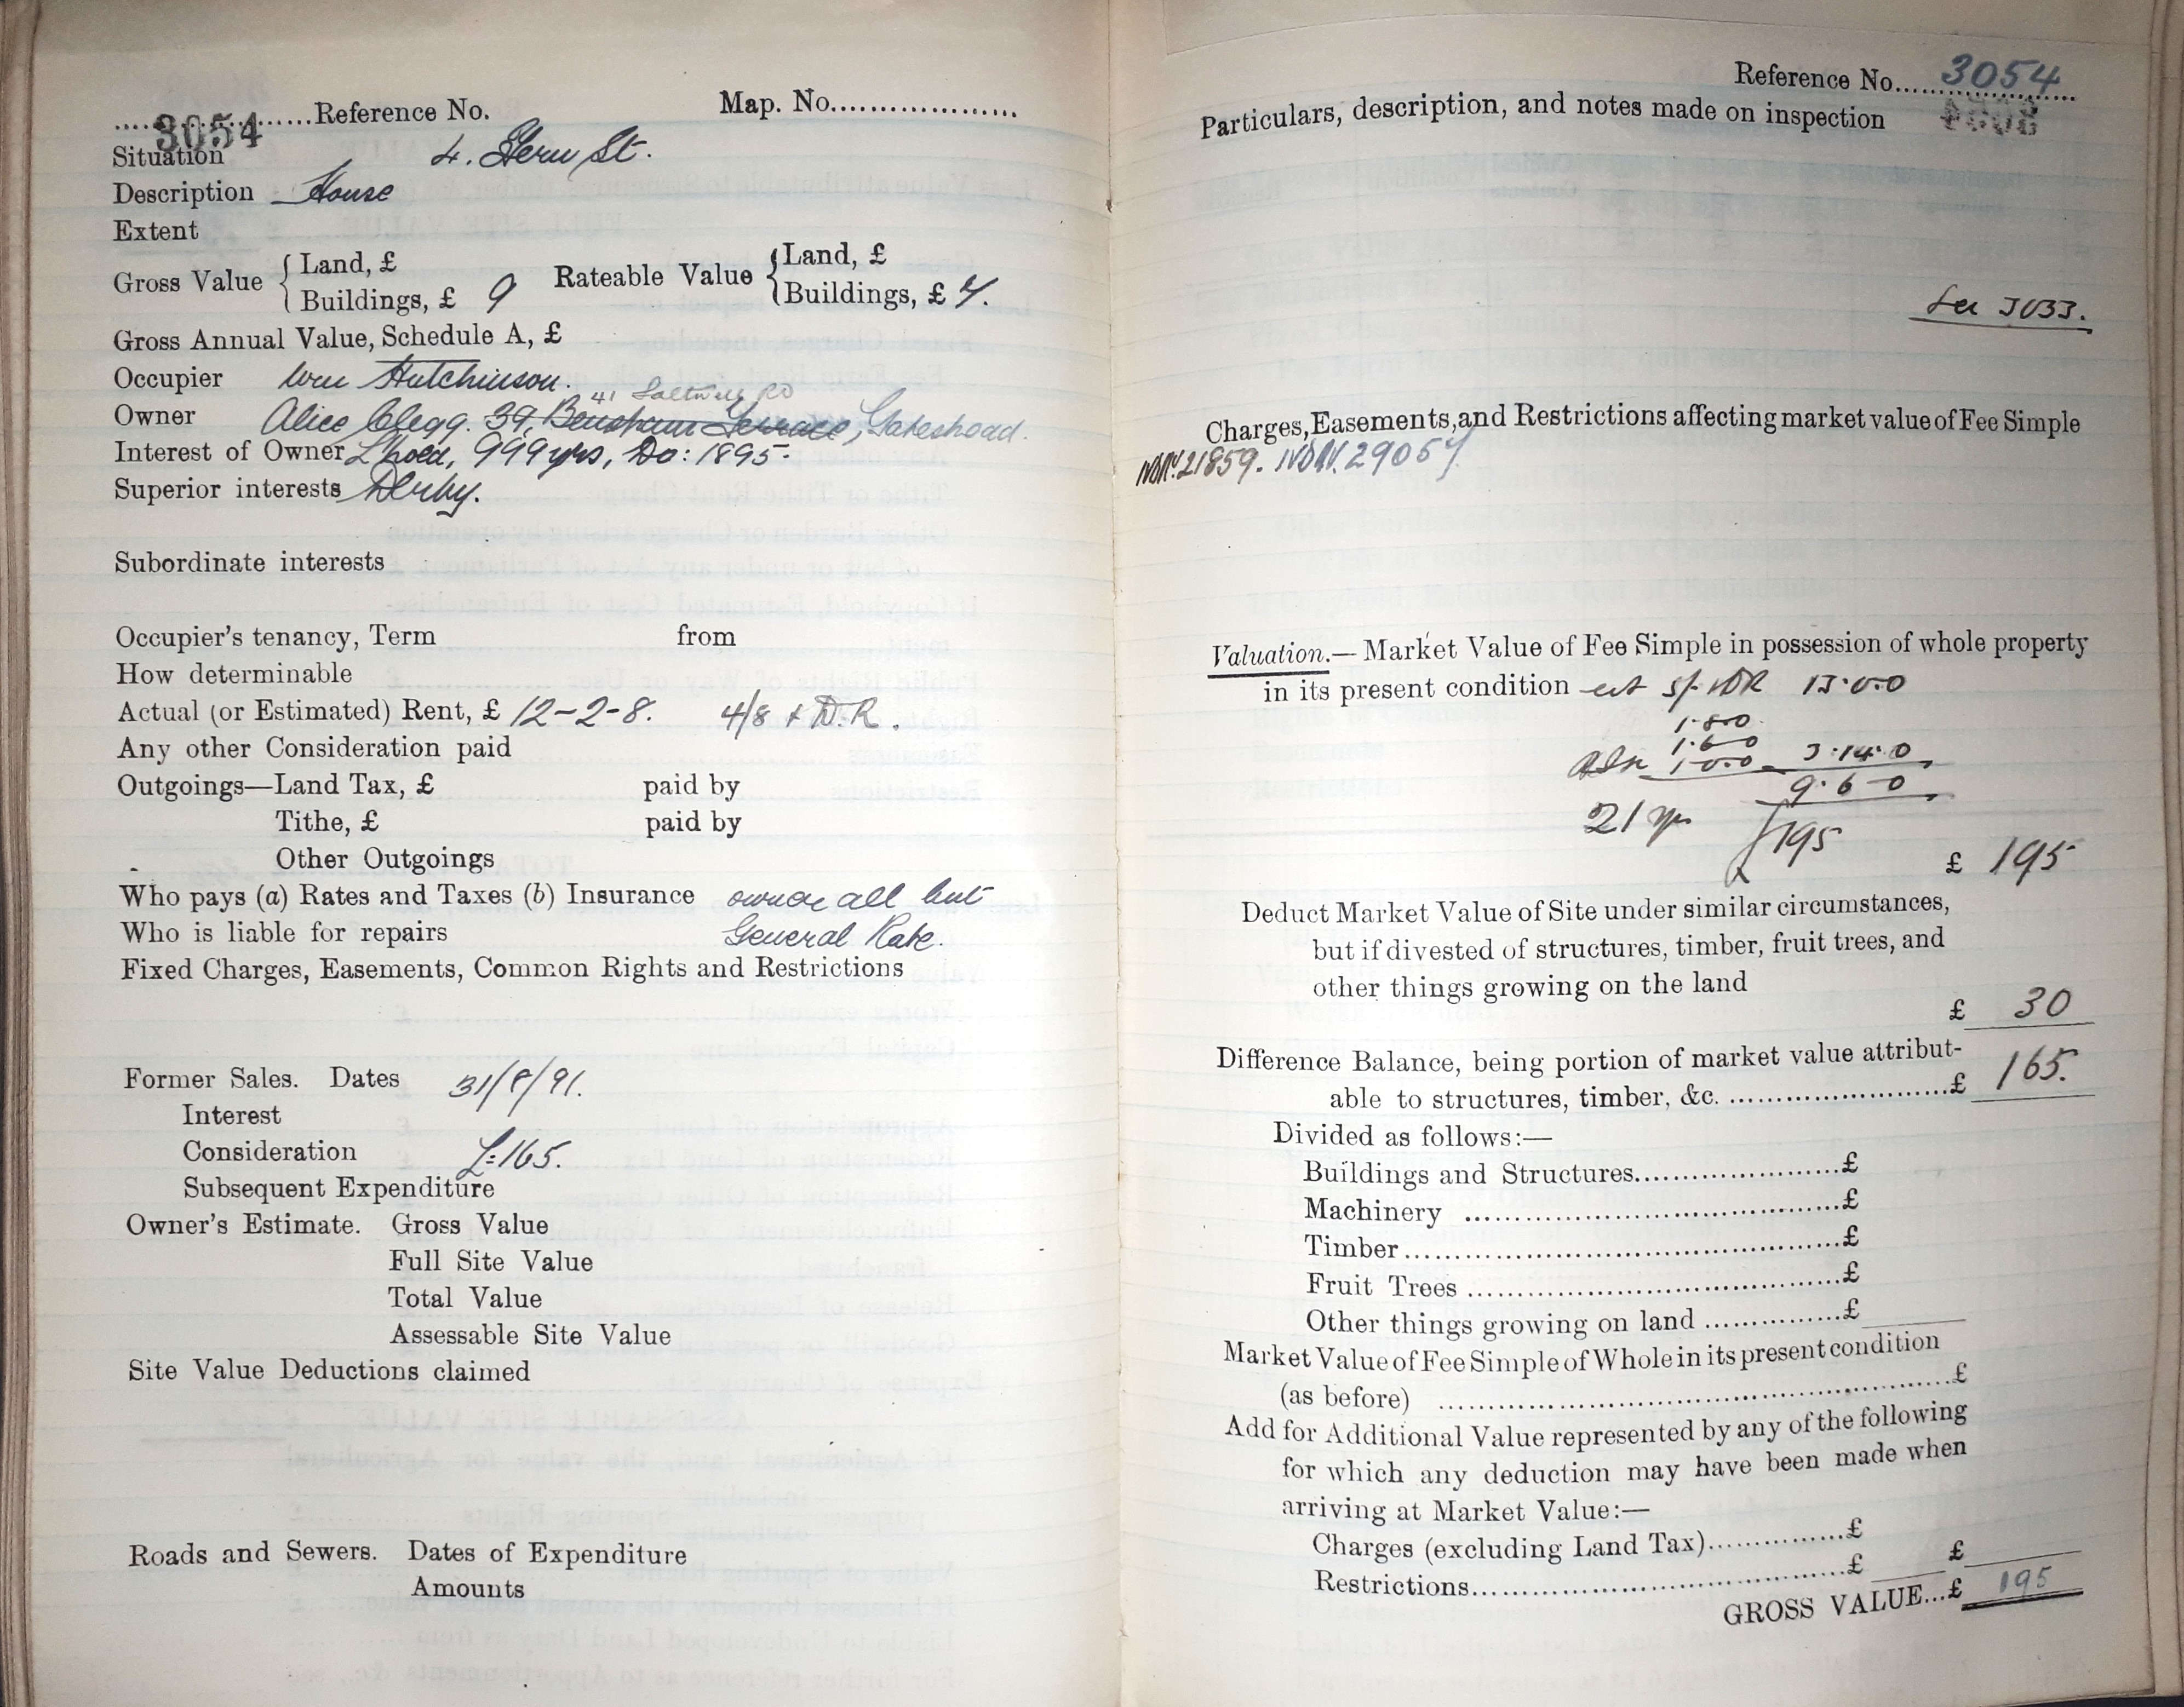 3054 Reference No. Map. No.
Situation 4. Fern St.
Description House
Extent
Gross Value { Land, £ Rateable Value { Land, £
Buildings, £ 9 Buildings, £ 7.
Gross Annual Value, Schedule A, £
Occupier Wm Hutchinson.
41 Saltwell Rd
Owner Alice Clegg. 39, Bensham Terrace, Gateshead.
Interest of Owner L'hold, 999 yrs, Do: 1895.
Superior interests Derby.
Subordinate interests
Occupier's tenancy, Term from
How determinable
Actual (or Estimated) Rent, £ 12-2-8. 4/8 + D.R.
Any other Consideration paid
Outgoings—Land Tax, £ paid by
Tithe, £ paid by
Other Outgoings
Who pays (a) Rates and Taxes (b) Insurance owner all but
Who is liable for repairs General Rate.
Fixed Charges, Easements, Common Rights and Restrictions
Former Sales. Dates 31/8/91.
Interest
Consideration £165.
Subsequent Expenditure
Owner's Estimate. Gross Value
Full Site Value
Total Value
Assessable Site Value
Site Value Deductions claimed
Roads and Sewers. Dates of Expenditure
Amounts
Reference No. 3054
Particulars, description, and notes made on inspection
See 3033.
Charges, Easements, and Restrictions affecting market value of Fee Simple
21859. 29057
Valuation.— Market Value of Fee Simple in possession of whole property
in its present condition est 5/- DR 13.0.0
1.8.0
1.6.0
1.0.0 3.14.0
9.6.0
21 yp £195
£ 195
Deduct Market Value of Site under similar circumstances,
but if divested of structures, timber, fruit trees, and
other things growing on the land
£ 30
Difference Balance, being portion of market value attribut-
able to structures, timber, &c. £ 165.
Divided as follows:—
Buildings and Structures £
Machinery £
Timber £
Fruit Trees £
Other things growing on land £
Market Value of Fee Simple of Whole in its present condition
(as before) £
Add for Additional Value represented by any of the following
for which any deduction may have been made when
arriving at Market Value:—
Charges (excluding Land Tax) £
Restrictions £ £
GROSS VALUE...£ 195